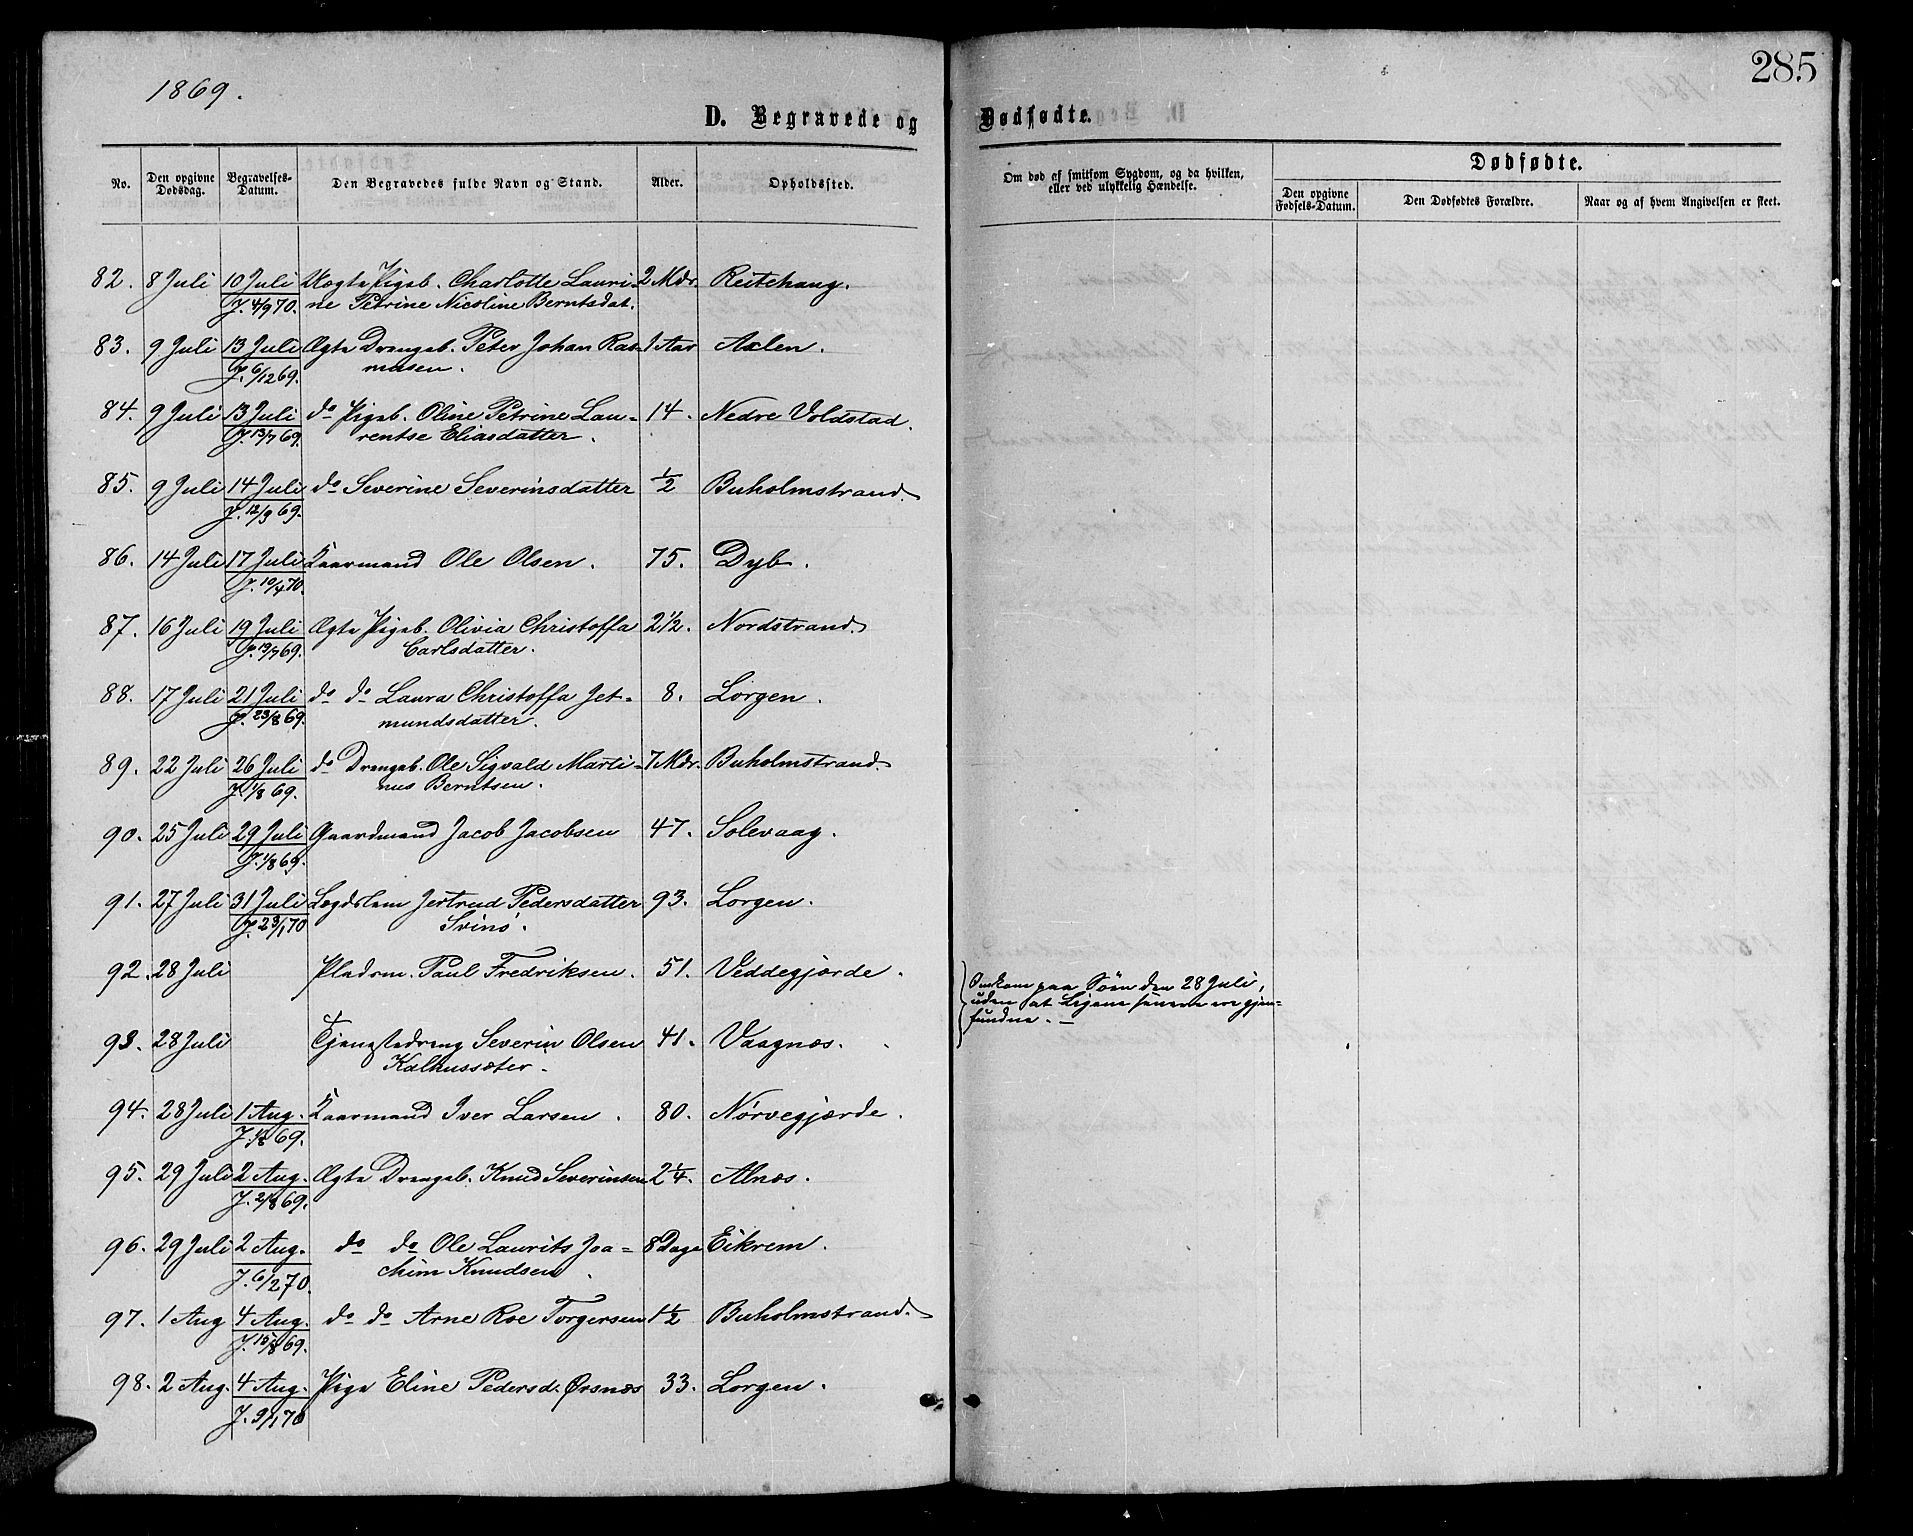 1869.
285
D. Begravede og Dødfødte.
No. Den opgivne Dødsdag. Begravelses-Datum. Den Begravedes fulde Navn og Stand. Alder. Opholdssted.
Om død af smitsom Sygdom, og da hvilken, eller ved ulykkelig Hændelse.
Dødfødte.
Den opgivne Fødsels-Datum. Den Dødfødtes Forældre. Naar og af hvem Angivelsen er skeet.
82. 8 Juli 10 Juli Uægte Pigeb. Charlotte Lauri- 2 Mdr. Reitehaug.
J. 4/9 70. ne Petrine Nicoline Berntsdat.
83. 9 Juli 13 Juli Ægte Drengeb. Peter Johan Ras- 1 Aar Axlen.
J. 6/12 69. musen.
84. 9 Juli 13 Juli do Pigeb. Oline Petrine Lau- 14. Nedre Voldstad.
J. 13/7 69. rentse Eliasdatter.
85. 9 Juli 14 Juli do Severine Severinsdatter 1/2 Buholmstrand.
J. 12/9 69.
86. 14 Juli 17 Juli Kaarmand Ole Olsen. 75. Dyb.
J. 10/4 70.
87. 16 Juli 19 Juli Ægte Pigeb. Olivia Christoffa 2 1/2. Nordstrand.
J. 19/7 69. Carlsdatter.
88. 17 Juli 21 Juli do do Laura Christoffa Jet- 8. Lorgen.
J. 23/8 69. mundsdatter.
89. 22 Juli 26 Juli do Drengeb. Ole Sigvald Marti- 7 Mdr. Buholmstrand.
J. 1/8 69. nus Berntsen.
90. 25 Juli 29 Juli Gaardmand Jacob Jacobsen 47. Solevaag.
J. 1/8 69.
91. 27 Juli 31 Juli Lægdslem Jertrud Pedersdatter 93. Lorgen.
J. 23/1 70 Svinö.
92. 28 Juli Pladsm. Paul Fredriksen. 51. Veddegjærde.
Omkom paa Søen den 28 Juli,
uden at Ligene senere ere gjen-
fundne. —
93. 28 Juli Tjenestedreng Severin Olsen 41. Vaagnæs.
Kalhussæter.
94. 28 Juli 1 Aug. Kaarmand Iver Larsen. 80. Nörvegjærde.
J. 1/8 69.
95. 29 Juli 2 Aug. Ægte Drengeb. Knud Severinsen 2 1/4. Alnæs.
J. 2/8 69.
96. 29 Juli 2 Aug. do do Ole Laurits Joa- 8 Dage Eikrem.
J. 6/2 70. chim Knudsen.
97. 1 Aug 4 Aug. do do Arne Roe Torgersen 1 1/2 Buholmstrand.
J. 15/8 69.
98. 2 Aug. 4 Aug. Pige Eline Pedersd. Ørsnæs 33. Lorgen.
J. 9/1 70